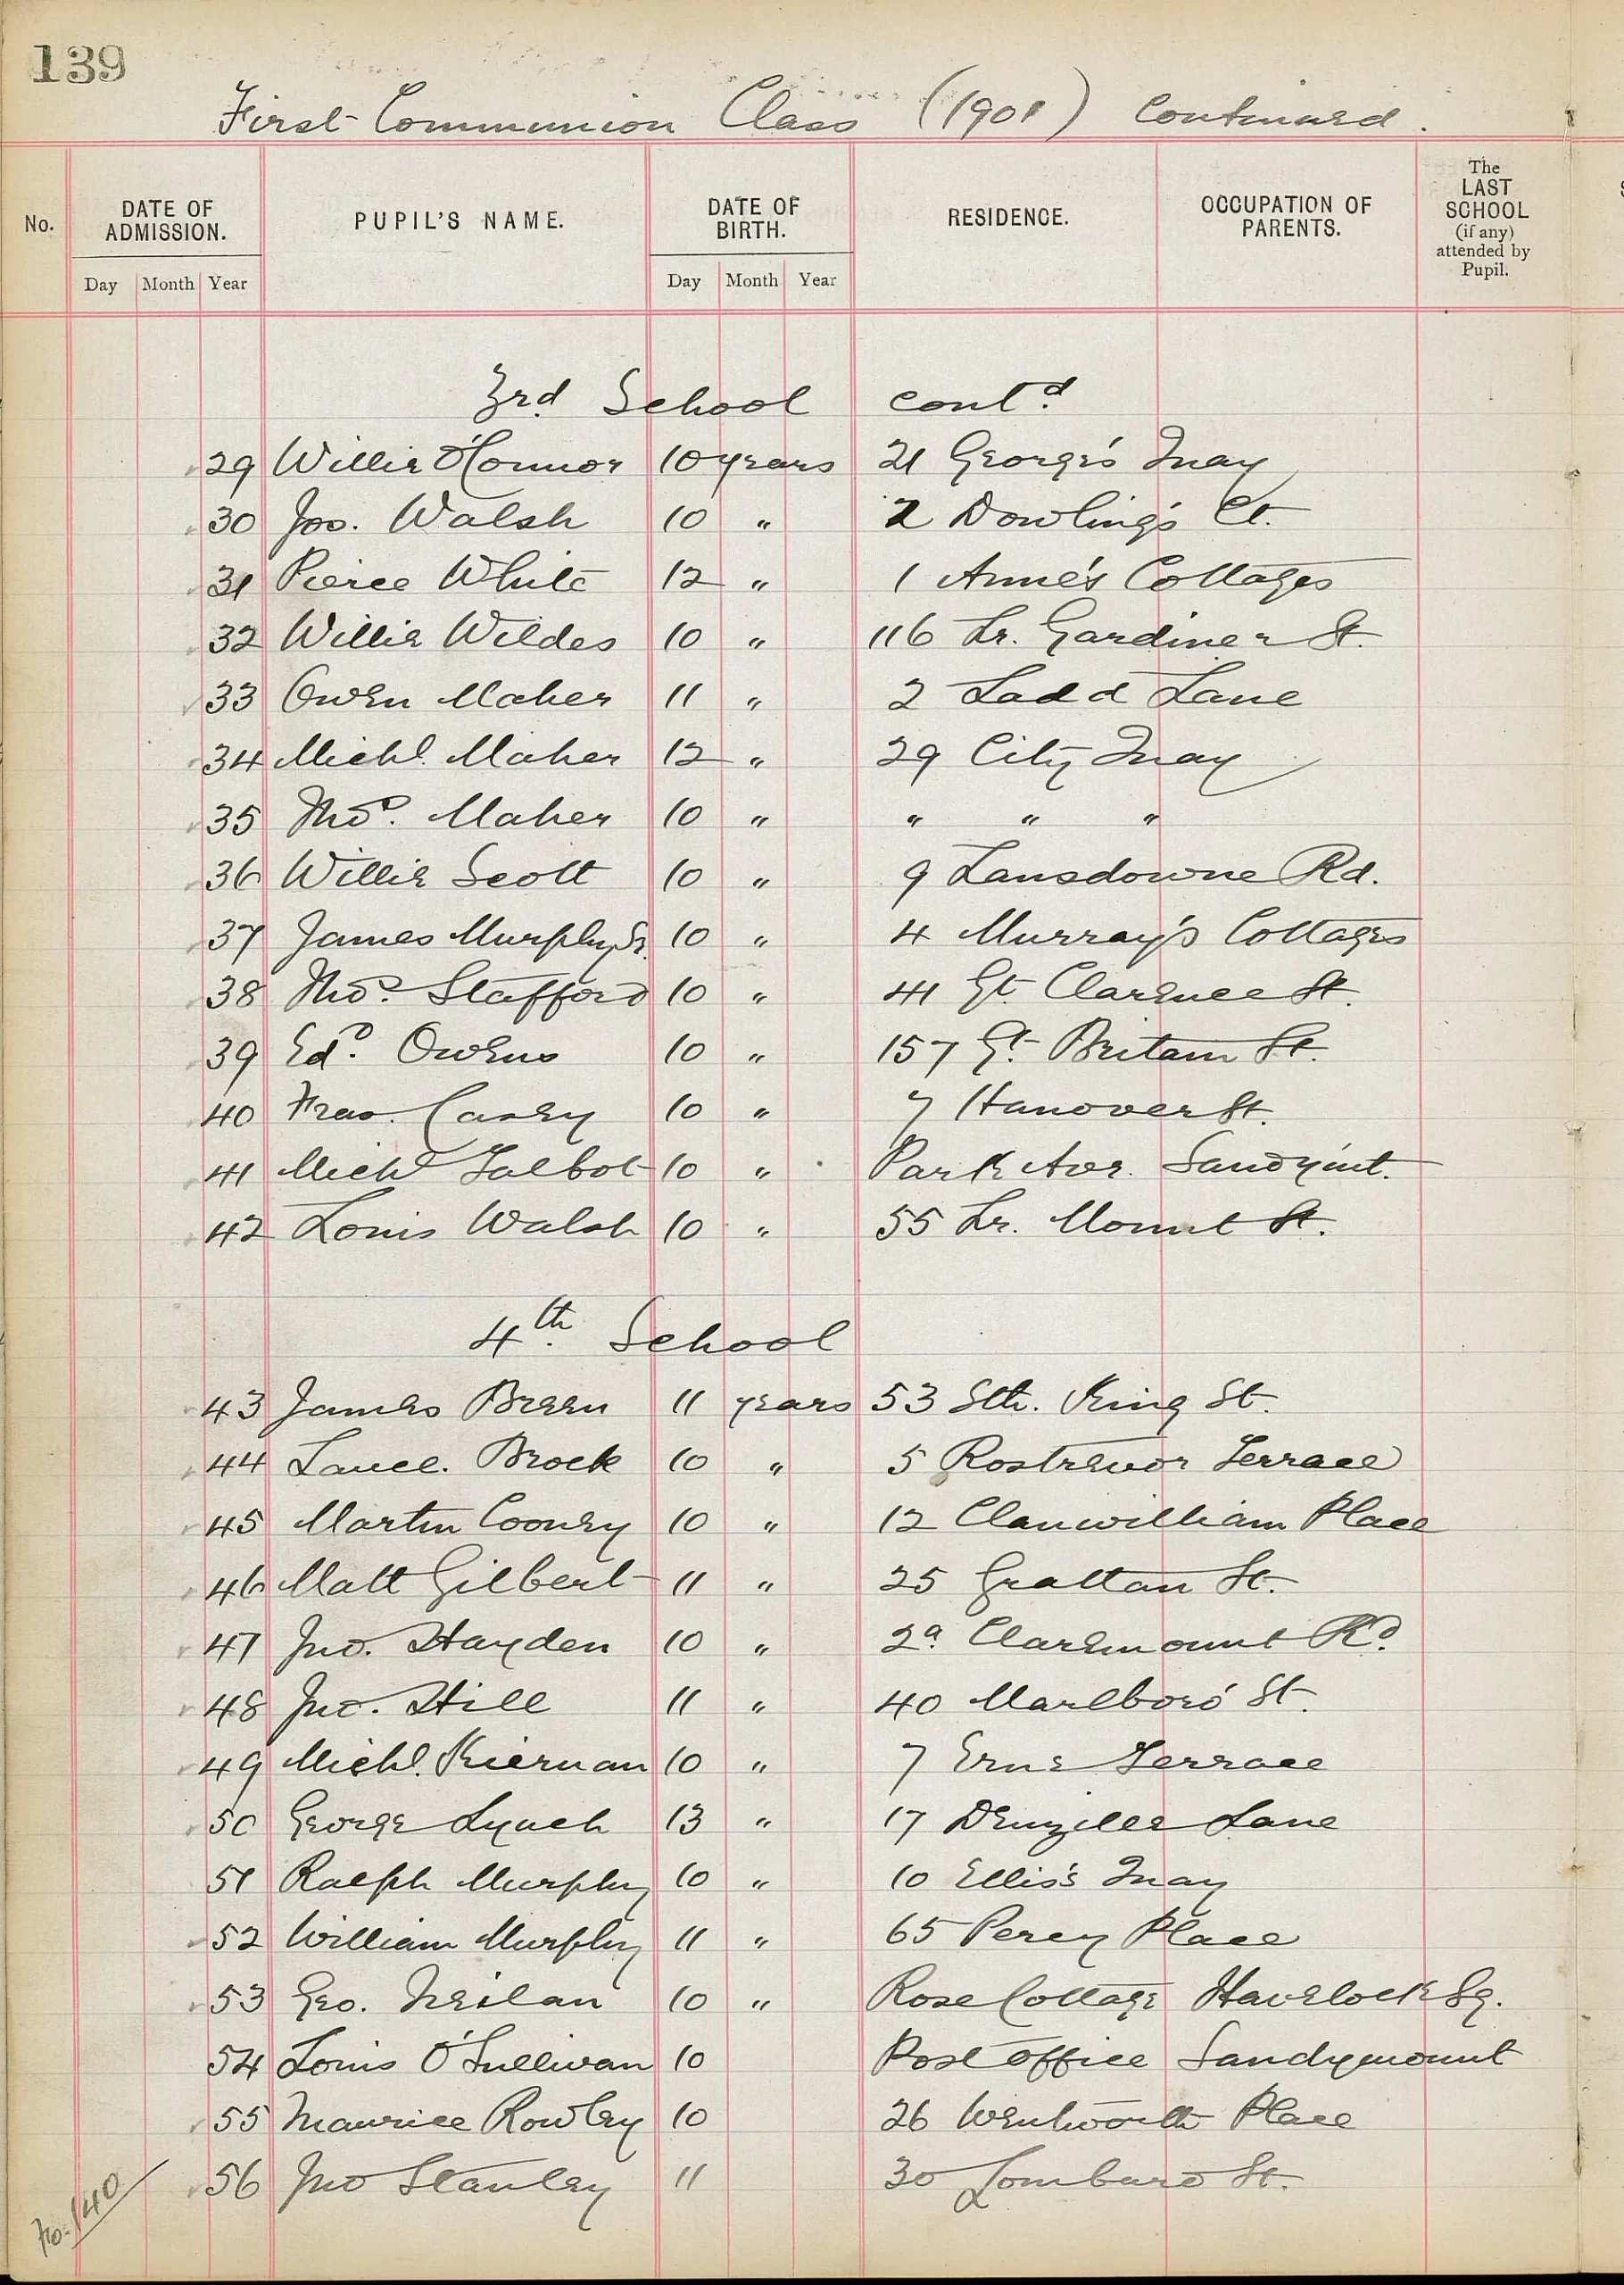 139
First Communion Class (1901) Continued.
No.
DATE OF ADMISSION.
PUPIL'S NAME.
DATE OF BIRTH.
RESIDENCE.
OCCUPATION OF PARENTS.
The LAST SCHOOL (if any) attended by Pupil.
Day Month Year Day Month Year
3rd School cont.d
29 Willie O'Connor 10 years 21 George's Quay
30 Jos. Walsh 10 " 2 Dowling's Ct.
31 Pierce White 12 " 1 Anne's Cottages
32 Willie Wildes 10 " 116 Lr. Gardiner St.
33 Owen Maher 11 " 2 Ladd Lane
34 Michl. Maher 12 " 29 City Quay
35 Thos. Maher 10 " " " "
36 Willie Scott 10 " 9 Lansdowne Rd.
37 James Murphy Sr. 10 " 4 Murray's Cottages
38 Thos. Stafford 10 " 41 Gt. Clarence St.
39 Edd. Owens 10 " 157 Gt. Britain St.
40 Fras. Casey 10 " 7 Hanover St.
41 Michl Talbot 10 " Park Ave. Sandymt.
42 Louis Walsh 10 " 55 Lr. Mount St.
4th. School
43 James Breen 11 years 53 Sth. King St.
44 Laurce. Brock 10 " 5 Rostrevor Terrace
45 Martin Cooney 10 " 12 Clanwilliam Place
46 Matt Gilbert 11 " 25 Grattan St.
47 Jno. Hayden 10 " 2a. Claremount Rd.
48 Jno. Hill 11 " 40 Marlboro' St.
49 Michl. Kiernan 10 " 7 Erne Terrace
50 George Lynch 13 " 17 Denzille Lane
51 Ralph Murphy 10 " 10 Ellis's Quay
52 William Murphy 11 " 65 Percy Place
53 Geo. Neilan 10 " Rose Cottage Havelock Sq.
54 Louis O'Sullivan 10 Post Office Sandymount
55 Maurice Rowley 10 26 Wentworth Place
56 Jno Stanley 11 30 Lombard St.
Fo. 140